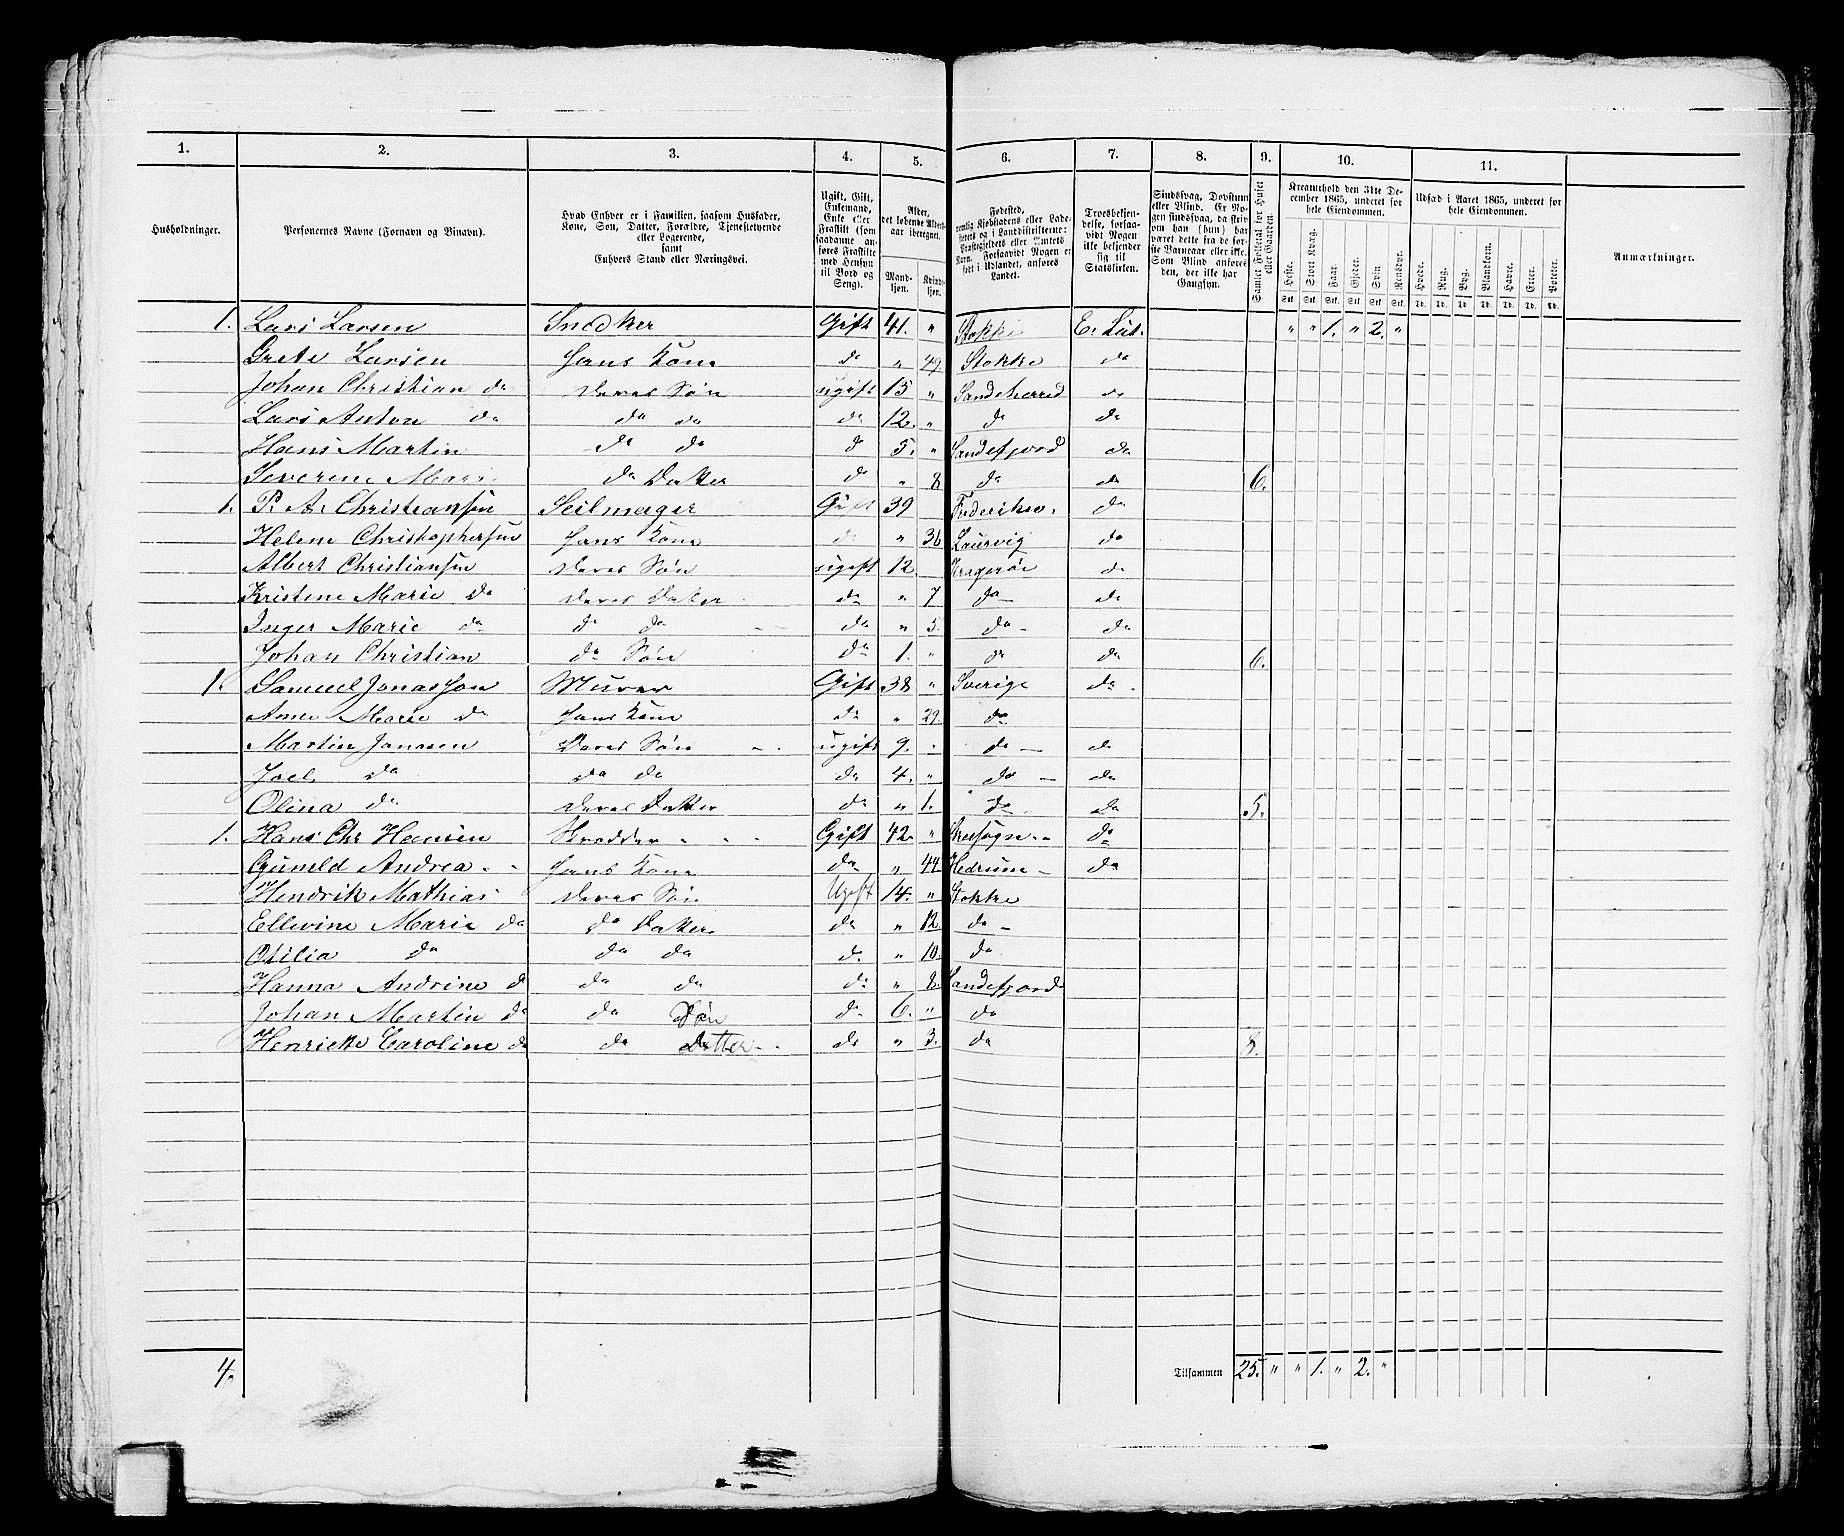 1. 2. 3. 4. 5. 6. 7. 8. 9. 10. 11.
Husholdninger.
Personernes Navne (Fornavn og Binavn).
Hvad Enhver er i Familien, saasom Husfader,
Kone, Søn, Datter, Forældre, Tjenestetyende
eller Logerende,
samt
Enhvers Stand eller Næringsvei.
Ugift, Gift,
Enkemand,
Enke eller
Fraskilt (som
saadanne an-
føres Fraskilte
med Hensyn
til Bord og
Seng).
Alder,
det løbende Alders-
aar iberegnet.
Mand-
kjøn.
Kvinde-
kjøn.
Fødested,
nemlig Kjøbstadens eller Lade-
stedets og i Landdistrikterne:
Præstegjeldets eller Amtets
Navn. Forsaavidt Nogen er
født i Udlandet, anføres
Landet.
Troesbekjen-
delse, forsaa-
vidt Nogen
ikke bekjender
sig til
Statskirken.
Sindssvag, Døvstum
eller Blind. Er No-
gen sindssvag, da skriv
om han (hun) har
været dette fra de før-
ste Barneaar eller ikke.
Som Blind anføres
den, der ikke har
Gangsyn.
Samlet Folketal for Huset
eller Gaarden.
Kreaturhold den 31te De-
cember 1865, underet for
hele Eiendommen.
Heste. Stort Kvæg. Faar. Gjeder. Svin. Rensdyr.
Stk. Stk. Stk. Stk. Stk. Stk.
Udsæd i Aaret 1865, underet for
hele Eiendommen.
Hvede. Rug. Byg. Blandkorn. Havre. Erter. Poteter.
Td. Td. Td. Td. Td. Td. Td.
Anmærkninger.
1. Lars Larsen Snedker Gift 41. " Stokke E. Lut. " " 1. " 2. "
Grete Larsen Hans Kone do " 49. Stokke do
Johan Christian do Deres Søn ugift 15 " Sandeherred do
Lars Anton do do do do 12. " do do
Hans Martin do do do 5. " Sandefjord do
Severine Mari do Datter do " 8 do do 6.
1. P. A. Christiansen Seilmager Gift 39 Frederiksv. do
Helene Christophersen Hans Kone do " 36 Laurvig do
Albert Christiansen Deres Søn ugift 12. Kragerøe do
Kristene Marie do Deres Datter do " 7 do do
Inger Marie do do do do " 5. do do
Johan Christian do Søn do 1. " do do 6.
1. Samuel Jonasson Murer Gift 38 " Sverige do
Anne Marie do Hans Kone do " 29. do
Martin Jonasen Deres Søn ugift 9. do do
Joel do do do do 4. " do do
Olina do Deres Datter do " 1. do do 5.
1. Hans Chr Hansen Skrædder Gift 42. " do
Gunild Andrea Hans Kone do " 44 Hedrum do
Hendrik Mathias Deres Søn Ugift 14. " Stokke
Ellevine Marie do do Datter do " 12. do
Otilia do do do do " 10. do
Hanna Andrine do do do do " 8. Sandefjord
Johan Martin do do Søn do 6. " do
Henriette Caroline do do Datter do " 3. do 8.
4. Tilsammen 25. " " 1. " 2. "